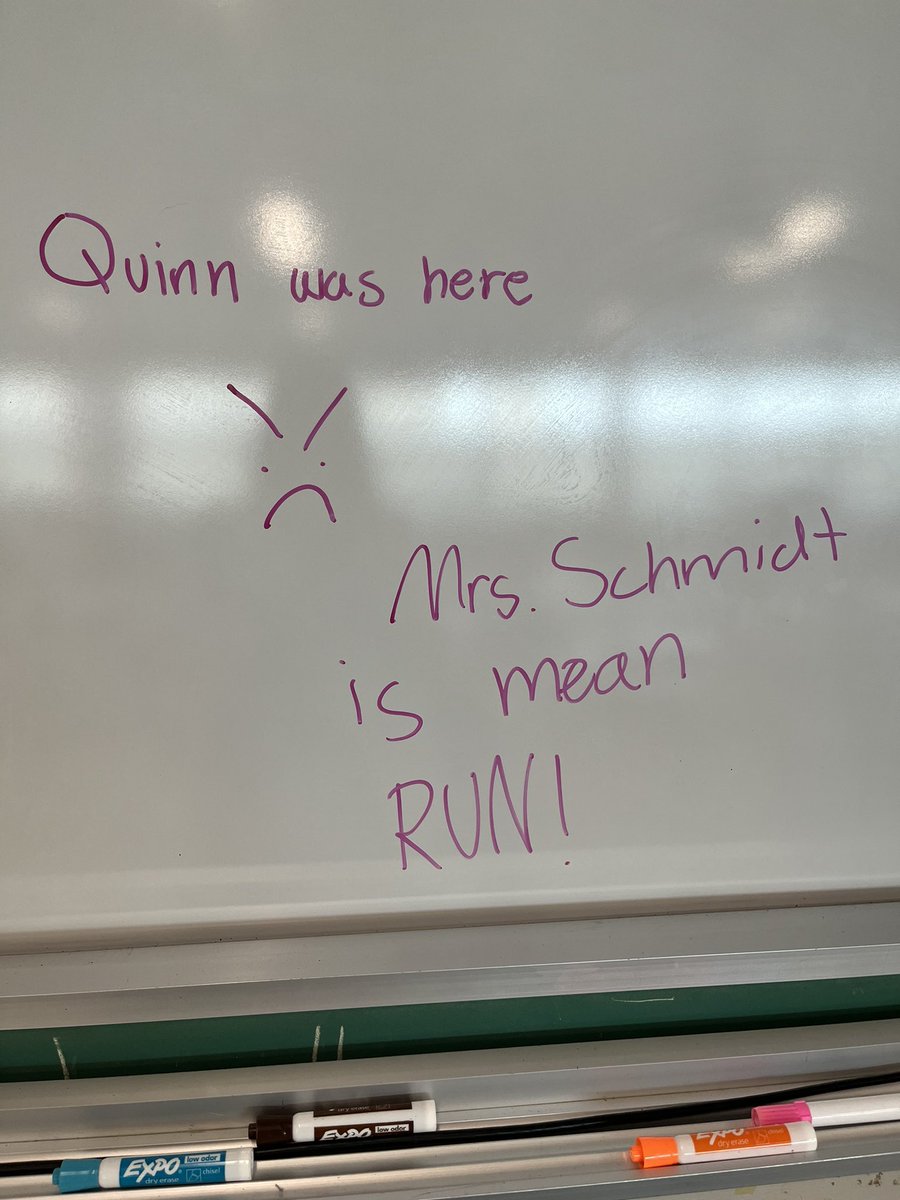 Quinn was here
Mrs. Schmidt
is mean
RUN!
dry erase
EXPO low odor
EXPO low odor chisel
dry erase
EXPO
dry erase chisel